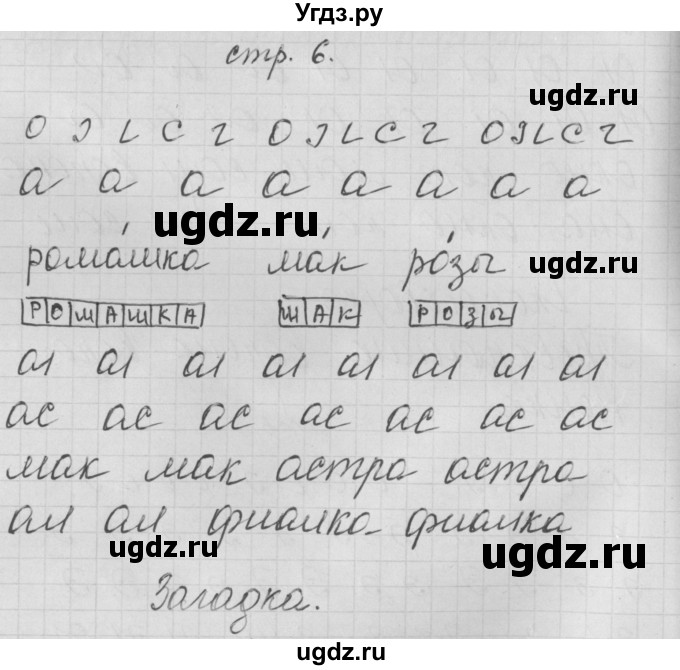 Угдз.ру
стр. 6.
ugdz.ru
о э ι с г о э ι с г о э ι с г
а а а а а а а а
ugdz.ru
ромашка мак розы
ugdz.ru
РОМАШКА МАК РОЗЫ
аι аι аι аι аι аι аι аι
ас ас ас ас ас ас ас
мак мак астра астра
ugdz.ru
ал ал фиалка фиалка
ugdz.ru
ugdz.ru
Загадка.
ugdz.ru